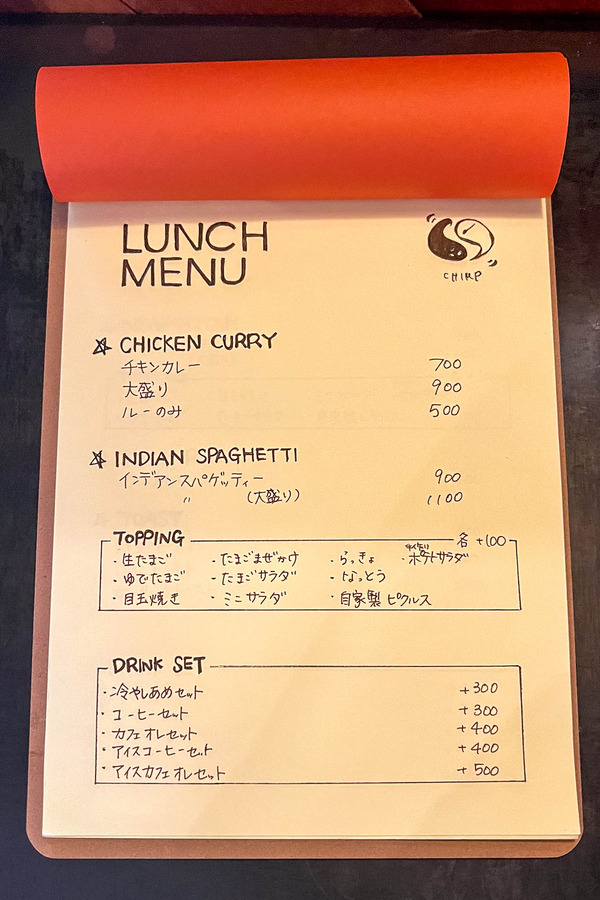 LUNCH
MENU
CHIRP
☆ CHICKEN CURRY
チキンカレー 700
大盛り 900
ルーのみ 500
☆ INDIAN SPAGHETTI
インデアンスパゲッティー 900
〃 (大盛り) 1100
TOPPING 各 +100
・生たまご ・たまごまぜかけ ・らっきょ ・ポテトサラダ
・ゆでたまご ・たまごサラダ ・なっとう
・目玉焼き ・ミニサラダ ・自家製ピクルス
DRINK SET
・冷やしあめセット +300
・コーヒーセット +300
・カフェオレセット +400
・アイスコーヒーセット +400
・アイスカフェオレセット +500